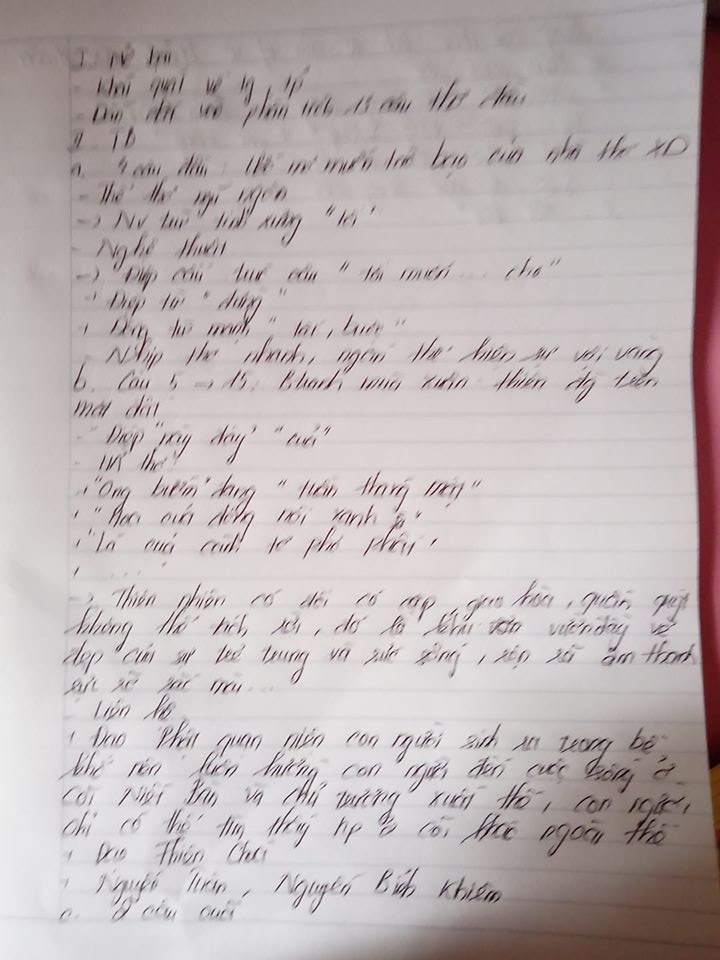 I. Mở bài
- Khái quát về tg, tp
- Dẫn dắt vào phân tích 13 câu thơ đầu
II. TB
a. 4 câu đầu: Ước mơ muốn táo bạo của nhà thơ XD
- Thể thơ ngũ ngôn
-> NV trữ tình xưng "tôi"
- Nghệ thuật
-> Điệp cấu trúc câu "tôi muốn ... cho"
+ Điệp từ "đừng"
+ Động từ mạnh "tắt, buộc"
- Nhịp thơ nhanh, ngắn thể hiện sự vội vàng
b. Câu 5 -> 13: Bức tranh mùa xuân - thiên đg trên
mặt đất
- Điệp "này đây" "của"
- HA thơ
+ "Ong bướm" đang "tuần tháng mật"
+ "Hoa của đồng nội xanh rì"
+ "Lá của cành tơ phơ phất"
+ ....
-> Thiên nhiên có đôi có cặp, giao hòa, quấn quýt
không thể tách rời, đó là khu vườn đầy vẻ
đẹp của sự trẻ trung và sức sống, rộn rã âm thanh
rực rỡ sắc màu...
- Liên hệ
+ Đạo Phật quan niệm con người sinh ra trong bể
khổ nên luôn hướng con người đến cuộc sống ở
cõi Niết Bàn và chủ trương xuất thế, con người
chỉ có thể tìm thấy hp ở cõi khác ngoài thế
+ Đạo Thiên Chúa
+ Nguyễn Tuân, Nguyễn Bỉnh Khiêm
c. 2 câu cuối